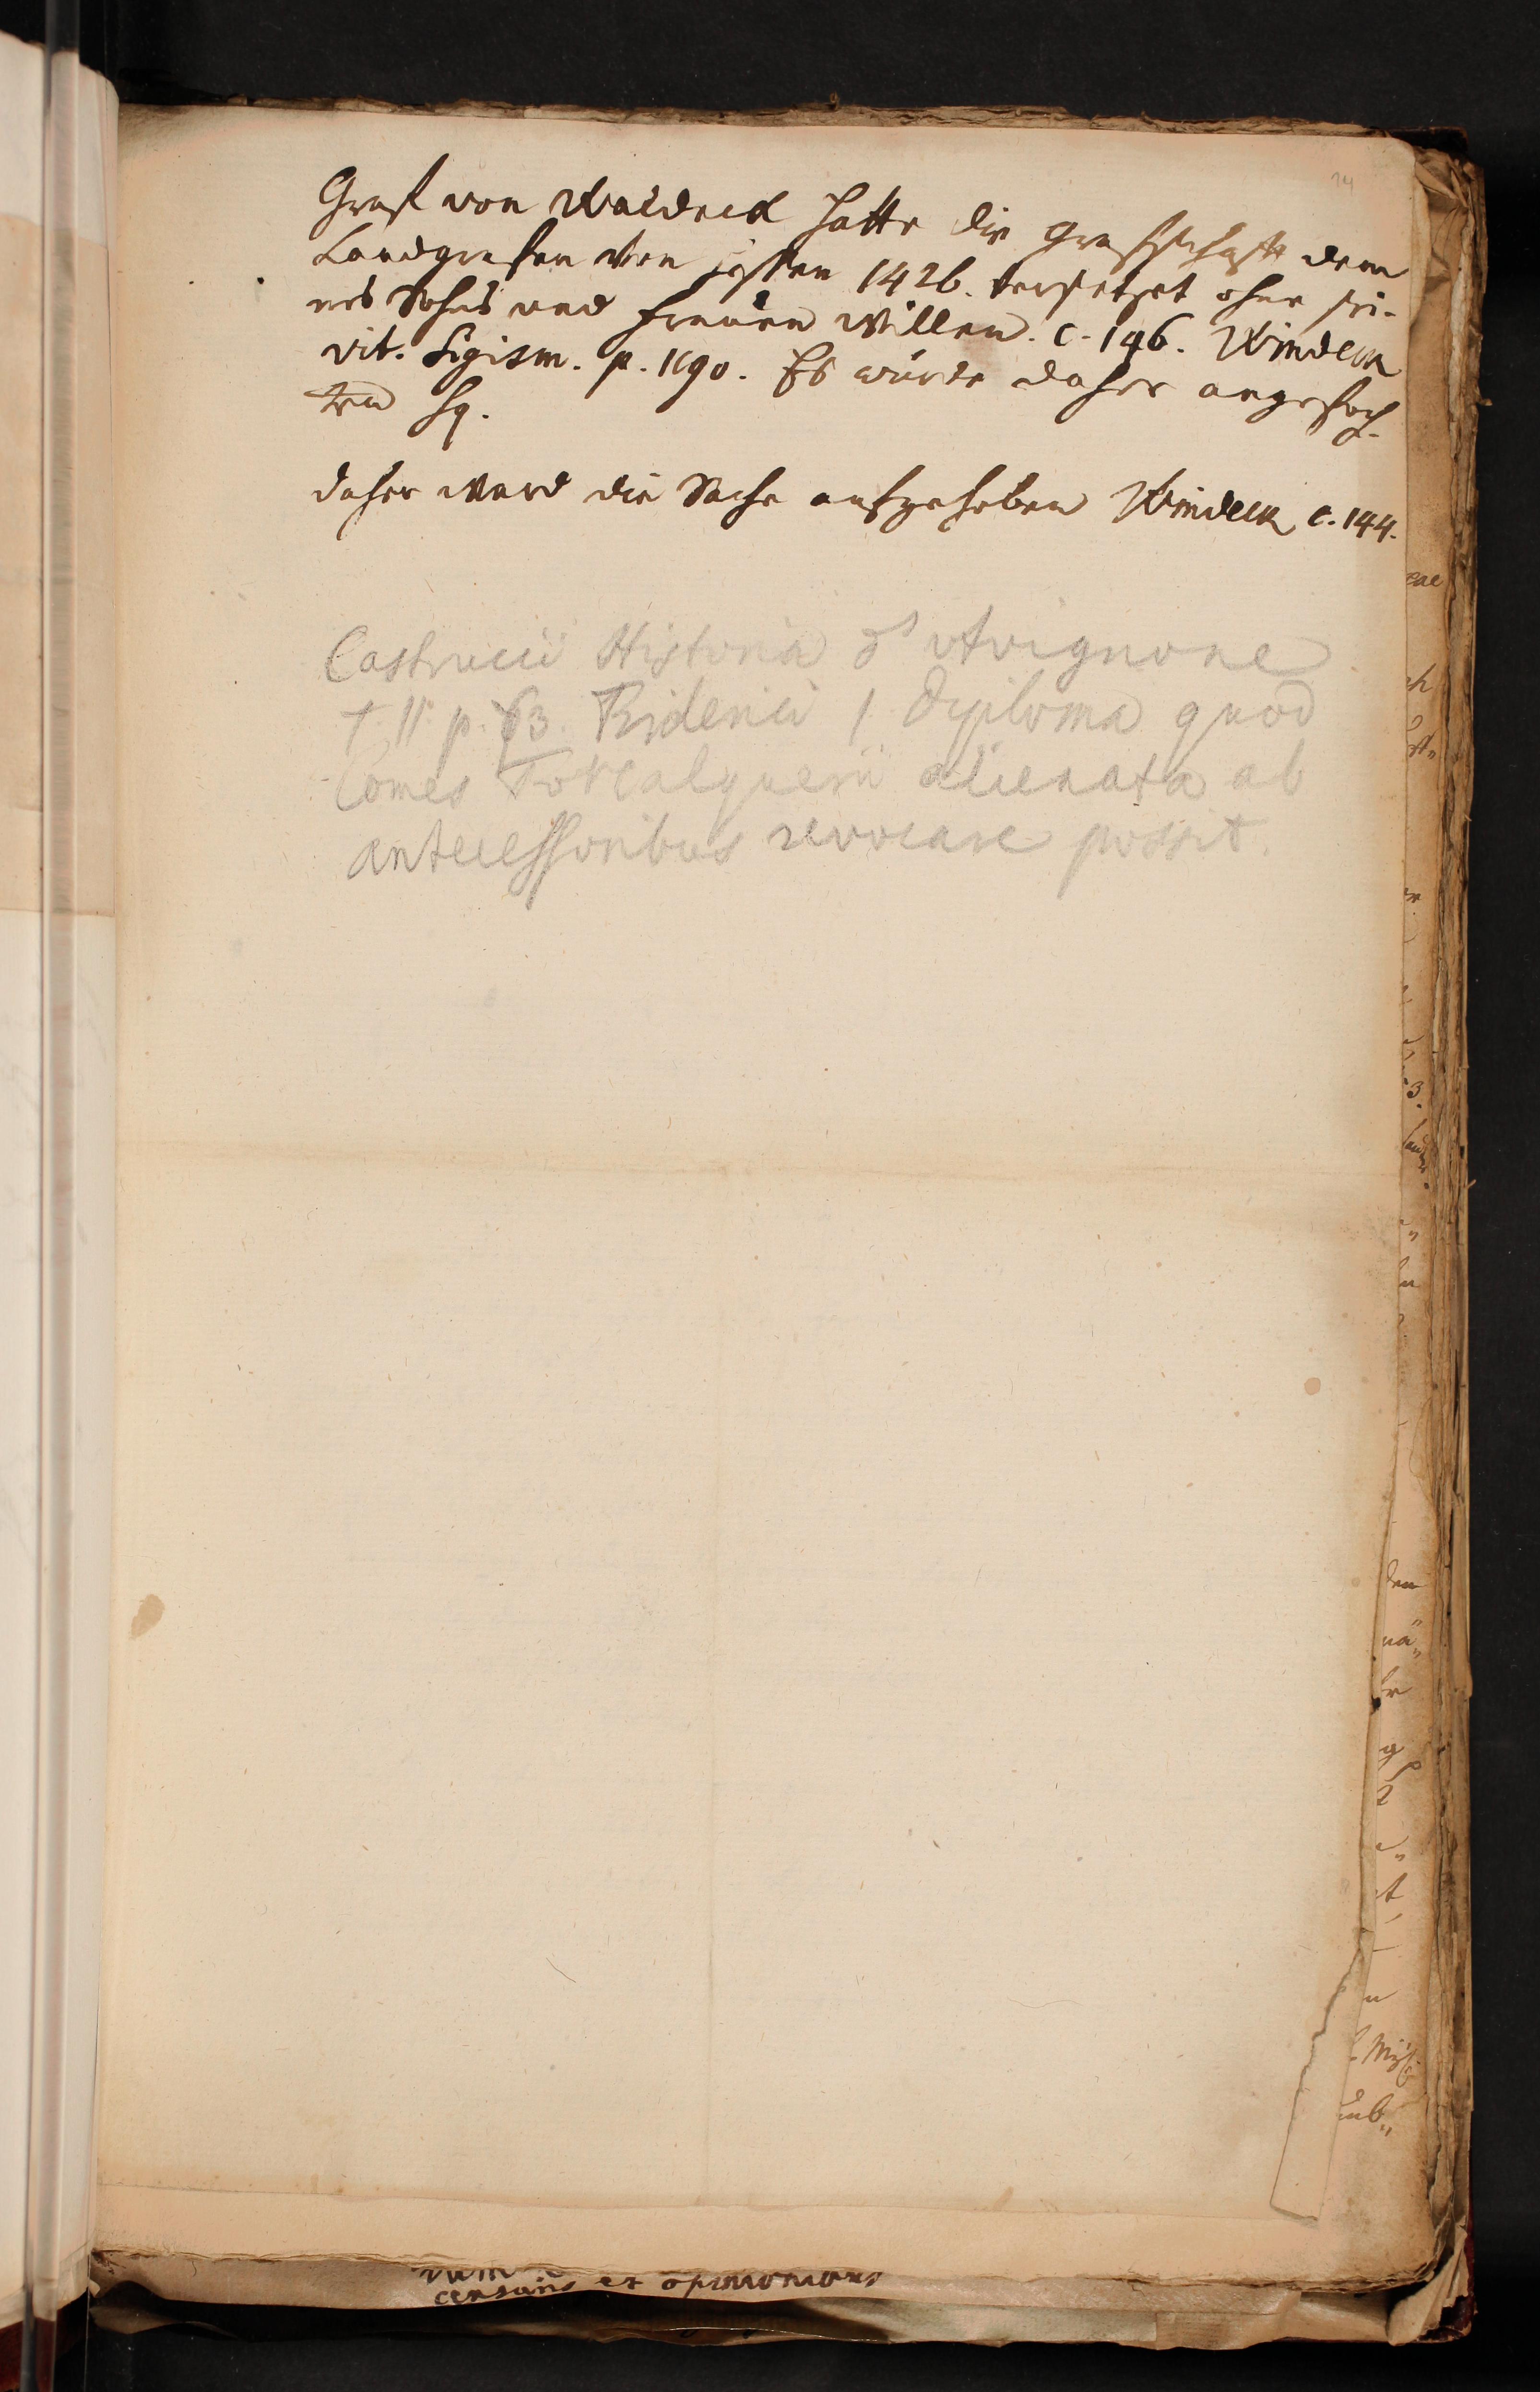 14
Graf von Waldeck hatte die Grafschafft dem
Landgrafen von Hessen 1426. versetzet ohne sei-
nes Sohns und Frauen Willen. c. 196. Windeck
vit. Sigism. p. 1190. Es würde daher angefoch-
ten sq.
daher ward die Sache aufgehoben Windeck c. 144.
Castrucii Historia d'Avignone
t. II p. 63. Friderici I Dyploma quod
Comes Forcalquerii alienata ab
antecessoribus revocare possit.
et opinionibus